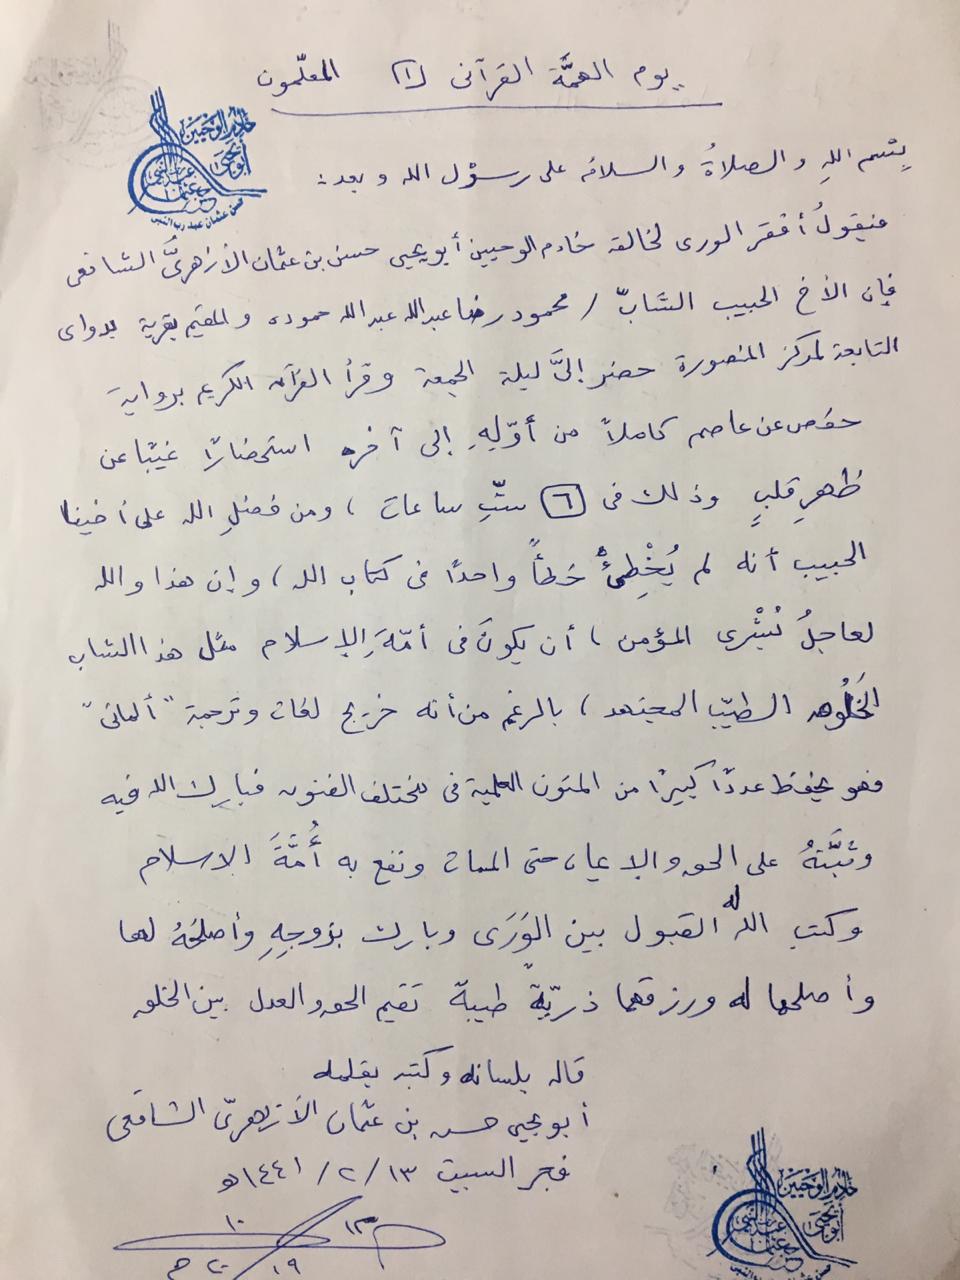 يوم الهمَّة القرآنى (١) المعلّمون
خادم الوحيين
أبو يحيى
حسن عثمان عبد رب النبى
بِسم اللهِ والصلاةُ والسلام على رسول الله وبعد :
فيقولُ أفقر الورى لخالقه خادم الوحيين أبو يحيى حسن بن عثمان الأزهرىُّ الشافعى
فإن الأخ الحبيب الشابّ / محمود رضا عبد الله عبد الله حموده والمقيم بقرية بدواى
التابعة لمركز المنصورة حضر إلىَّ ليلة الجمعة وقرأ القرآن الكريم برواية
حفص عن عاصم كاملاً من أوّلِهِ إلى آخره استحضارًا غيبًا عن
ظهرِ قلبٍ وذلك فى ٦ ستِّ ساعات ، ومن فضلِ الله على أخينا
الحبيب أنه لم يُخْطِئْ خطأً واحدًا فى كتاب الله ، وإن هذا والله
لعاجلُ بُشْرى المؤمن ، أن يكونَ فى أمّةِ الإسلام مثل هذا الشاب
الخَلُوق الطيّب المجتهد ، بالرغم من أنه خريج لغات وترجمة "ألمانى"
فهو يحفظ عددًا كبيرًا من المتون العلمية فى مختلف الفنون فبارك الله فيه
وثبَّتهُ على الحق والإيمان حتى الممات ونفع به أُمَّةَ الإسلام
وكتب الله له القبول بين الوَرَى وبارك بزوجِهِ وأصلحَهُ لها
وأصلحها له ورزقهما ذريّة طيبة تقيم الحق والعدل بين الخلق
قاله بلسانه وكتبه بقلمه
أبو يحيى حسن بن عثمان الأزهرىّ الشافعى
فجر السبت ١٣ / ٢ / ١٤٤١هـ
١٠
٢٠١٩ م
خادم الوحيين
أبو يحيى
حسن عثمان عبد رب النبى